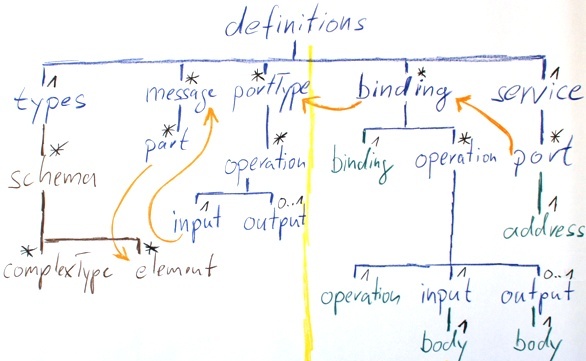 definitions
types 1 message * portType * binding * service 1
part * operation * binding 1 operation * port *
schema *
input 1 output 0..1 address 1
complexType * element *
operation 1 input 1 output 0..1
body 1 body 1